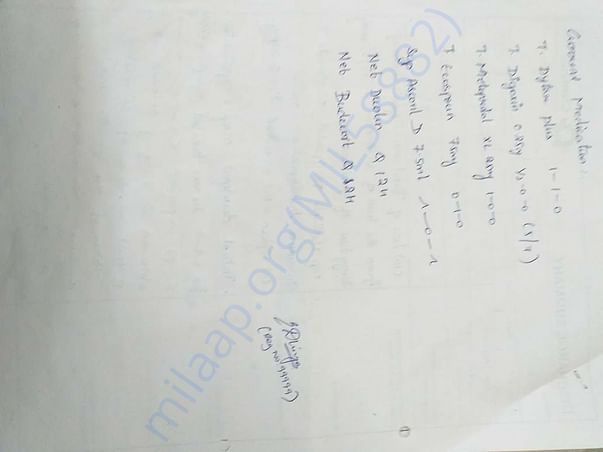 Current Medication:
T. Dytor plus 1-1-0
T. Digoxin 0.25mg ½-0-0 (5/7)
T. Metoprolol XL 25mg 1-0-0
T. Ecosprin 75mg 0-1-0
Syp Ascoril D 7.5ml 1-0-1
Neb Duolin Q 12H
Neb Budecort Q 12H
(Reg no 99999)
milaap.org(MIL58882)